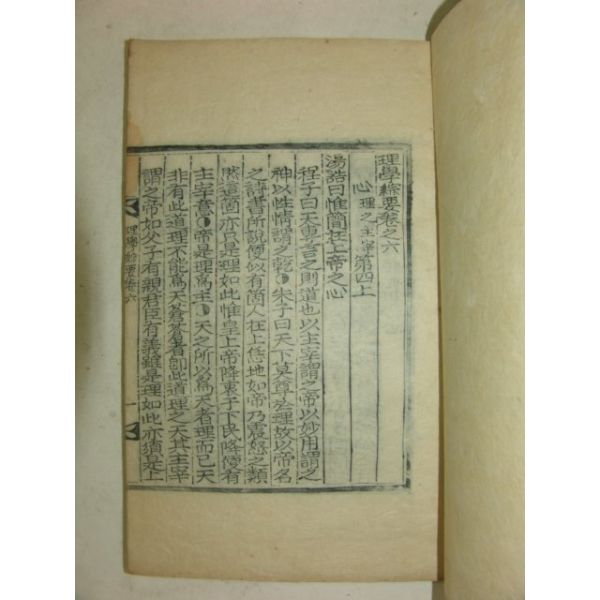 理學綜要卷之六
心理之主宰第四上
湯誥曰惟簡在上帝之心
程子曰天專言之則道也以主宰謂之帝以妙用謂之
神以性情謂之乾 朱子曰天下莫尊於理故以帝名
之詩書所說便似有箇人在上恁地如帝乃震怒之類
然這箇亦只是理如此惟皇上帝降衷于下民降便有
主宰意 帝是理爲主 天之所以爲天者理而已天
非有此道理不能爲天蒼蒼者卽此道理之天其主宰
謂之帝如父子有親君臣有義雖是理如此亦須是上
理學綜要卷六 一